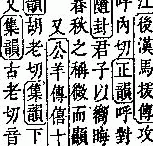 江後漢馬援傳
呼內切正韻呼對
隨封君子以嚮晦
春秋之稱微而顯
又公羊傳僖十
韻胡老切集韻下
又集韻古老切音